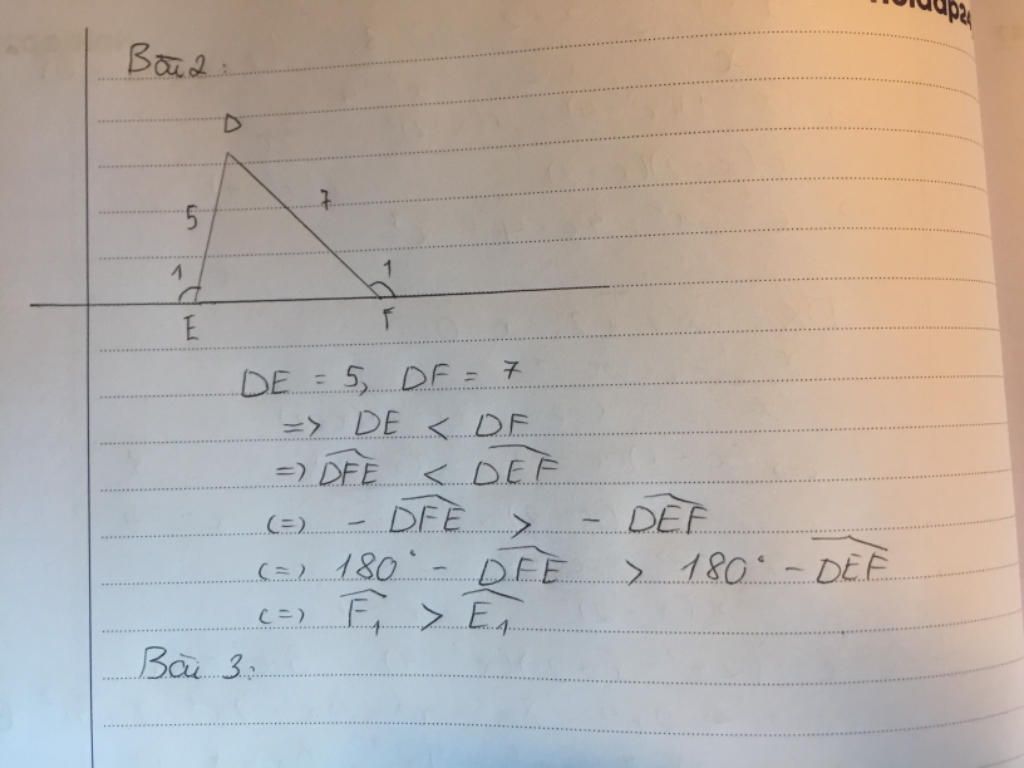 Bài 2:
D
5
7
1
1
E
F
DE = 5, DF = 7
=> DE < DF
=> \widehat{DFE} < \widehat{DEF}
(=) - \widehat{DFE} > - \widehat{DEF}
(=) 180° - \widehat{DFE} > 180° - \widehat{DEF}
(=) \widehat{F_1} > \widehat{E_1}
Bài 3: